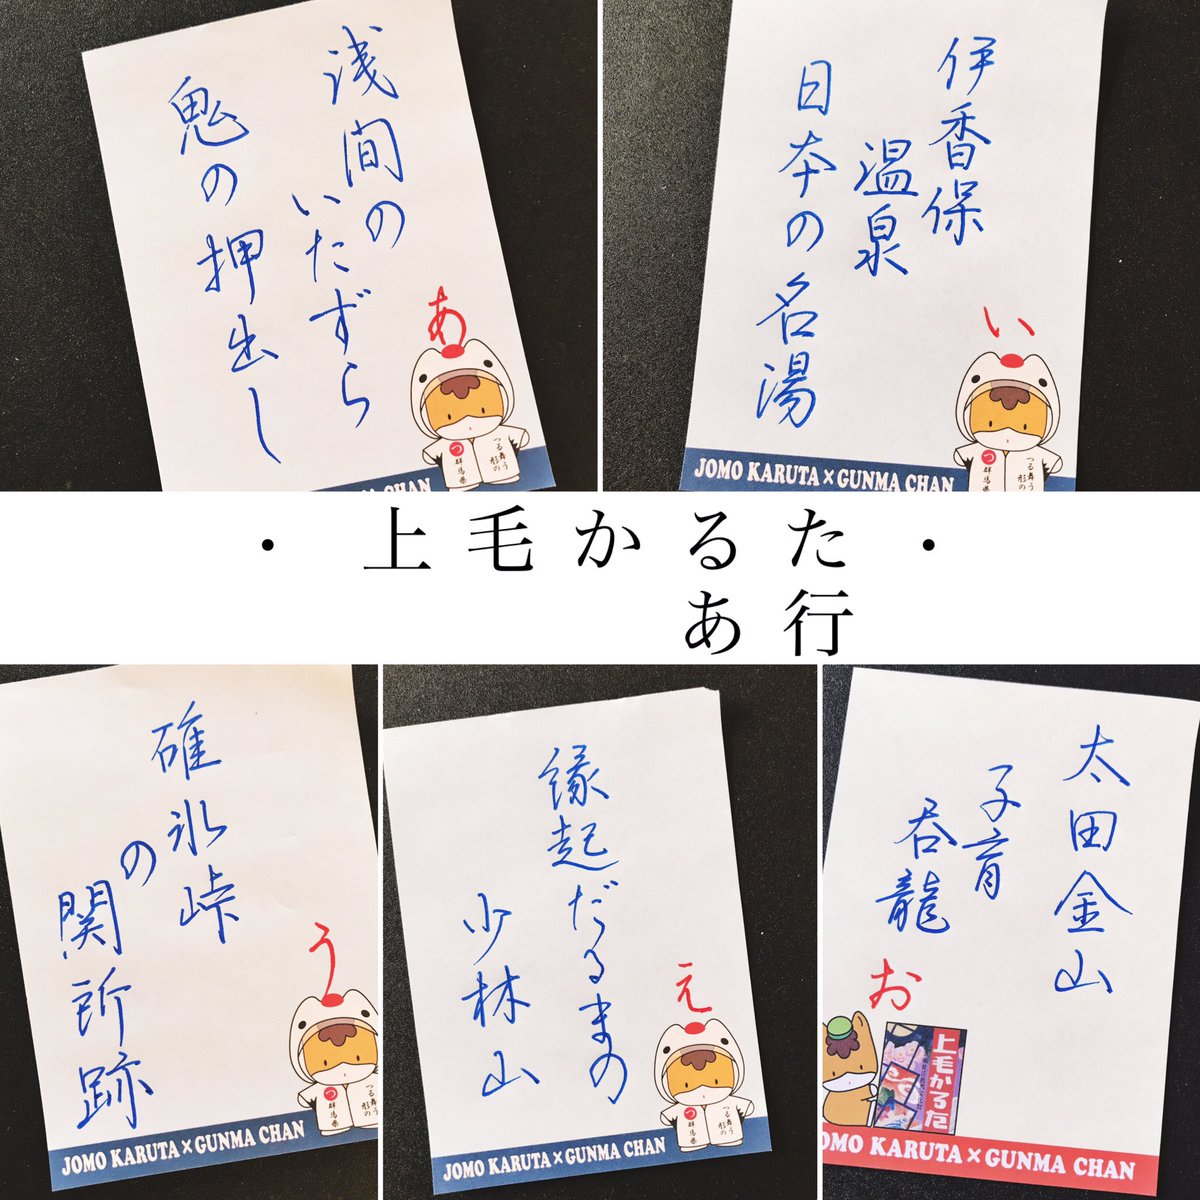 浅間の
いたずら
鬼の押出し
あ
つる舞う
形の
つ
群馬県
JOMO KARUTA×GUNMA CHAN
伊香保
温泉
日本の名湯
い
つる舞う
形の
つ
群馬県
JOMO KARUTA×GUNMA CHAN
・上毛かるた・
あ行
碓氷峠
の
関所跡
う
つる舞う
形の
つ
群馬県
JOMO KARUTA×GUNMA CHAN
縁起だるまの
少林山
え
つる舞う
形の
つ
群馬県
JOMO KARUTA×GUNMA CHAN
太田金山
子育
呑龍
お
上毛かるた
JOMO KARUTA×GUNMA CHAN